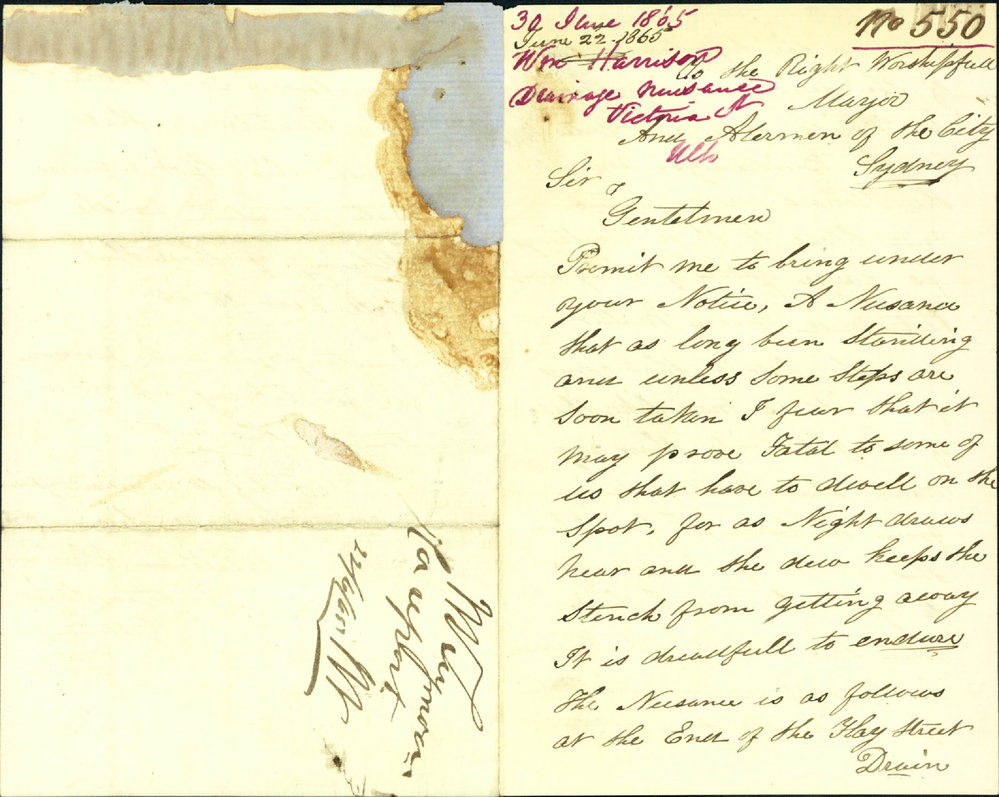 30 June 1865
June 22 1865
Wm Harrison
Drainage Nuisance
Victoria St
No 550
To the Right Worshipfull
Mayor
And Alermen of the City
Sydney
Sir
Gentelmen
Permit me to bring under
your Notice, A Neusance
that as long been standing
and unless some steps are
soon taken I fear that it
may prove Fatal to some of
us that have to dwell on the
spot, for as Night draws
near and the dew keeps the
stench from getting away
It is dreadfull to endure
The Neusance is as follows
at the End of the Hay Street
Drain
Mr Seymour
for report